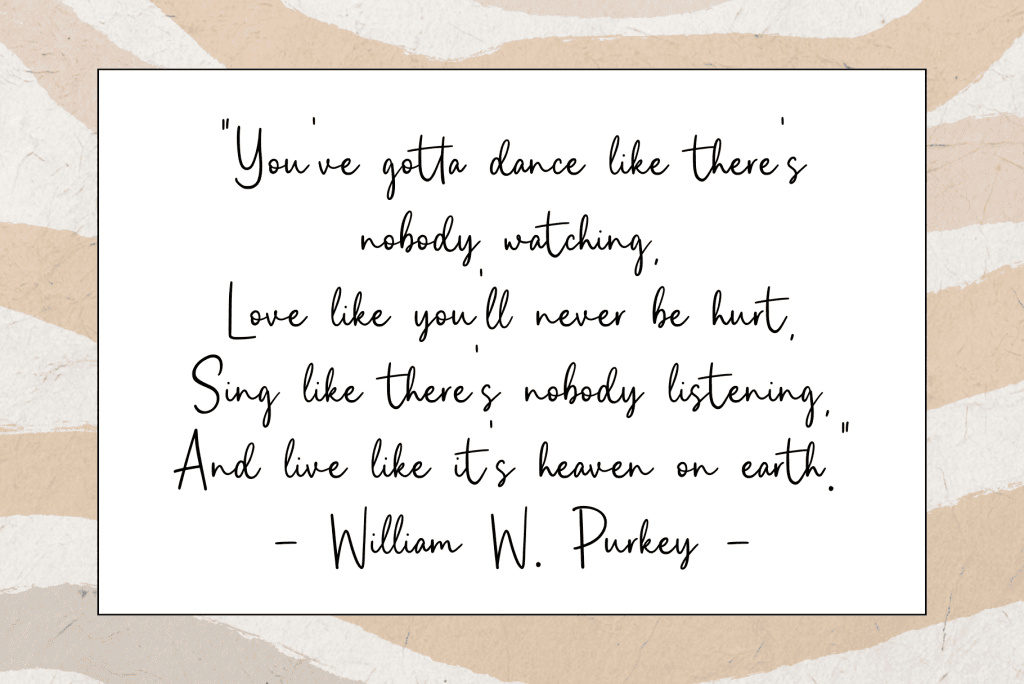 "You've gotta dance like there's
nobody watching,
Love like you'll never be hurt,
Sing like there's nobody listening,
And live like it's heaven on earth."
- William W. Purkey -